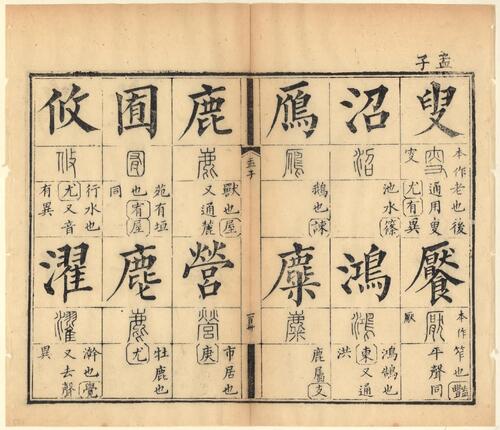 孟子
叟
本作叜
老也後
通用叟
尤有異
饜
本作厭
笮也豔
平聲同
沼
池水篠
鴻
鴻鵠也
東又通
洪
鴈
鵝也諫
麋
鹿屬支
孟子
鹿
獸也屋
又通麓
營
市居也
庚
囿
苑有垣
也宥屋
同
麀
牡鹿也
尤
攸
行水也
尤又音
有異
濯
澣也覺
又去聲
異